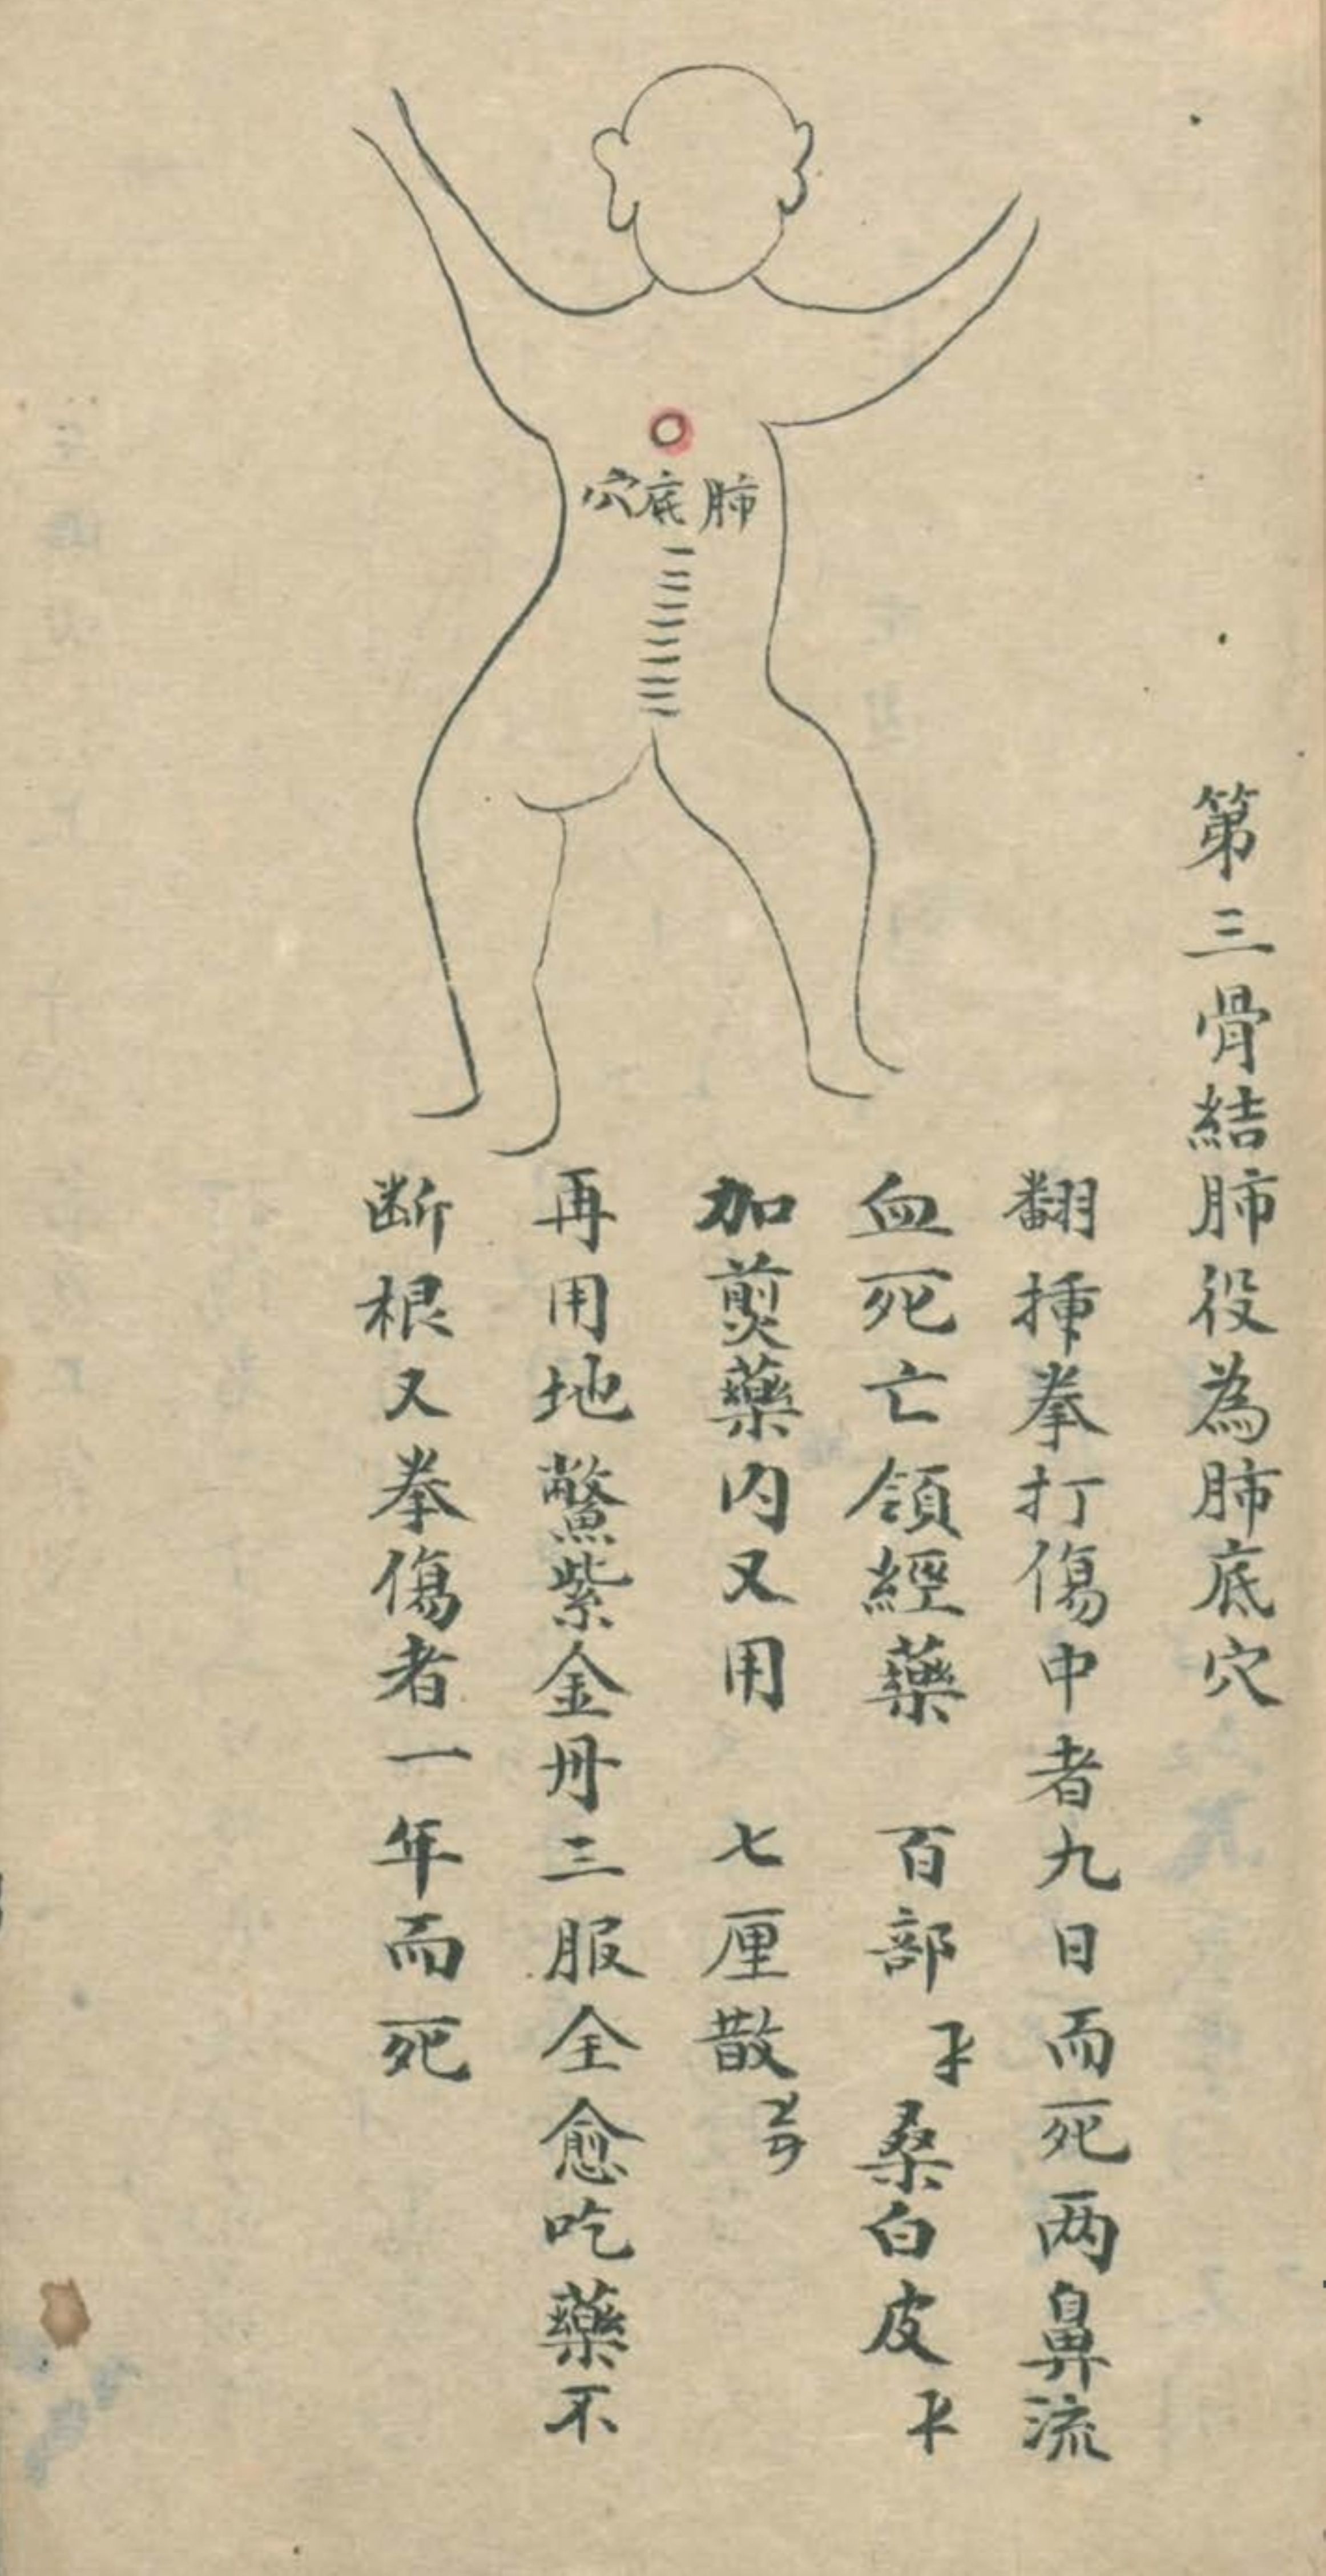 第三骨結肺役為肺底穴
翻揰拳打傷中者九日而死两鼻流
血死亡領經藥 百部 桑白皮
加煎藥内又用 七厘散
再用地鱉紫金丹三服全愈吃藥不
断根又拳傷者一年而死
肺底穴